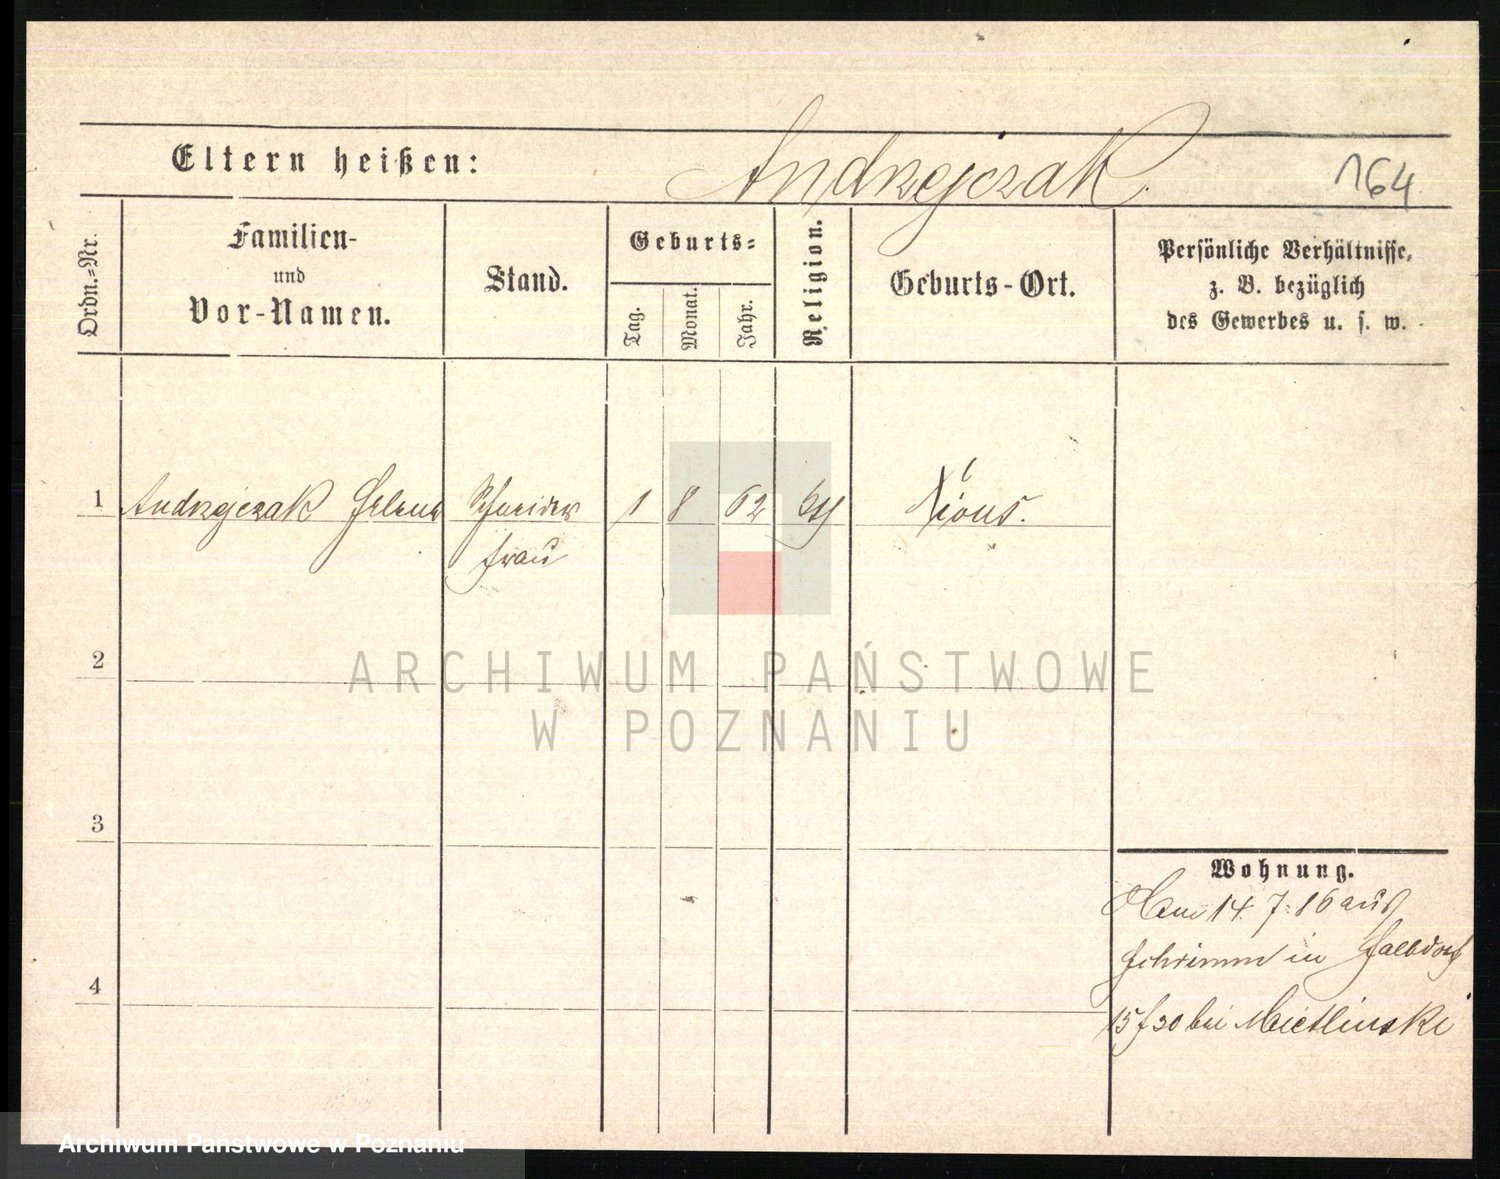 Eltern heißen: Andrzejczak 164
Ordn.=Nr.
Familien-
und
Vor-Namen.
Stand.
Geburts=
Tag.
Monat.
Jahr.
Religion.
Geburts-Ort.
Persönliche Verhältnisse,
z. B. bezüglich
des Gewerbes u. s. w.
1 Andrzejczak Helena Schneider 1 8 62 Xions.
frau
2
ARCHIWUM PAŃSTWOWE
W POZNANIU
3
Wohnung.
14 7. 16 aus
Schrimm in Halbdorf
4
bei
Archiwum Panstwowe w Poznaniu